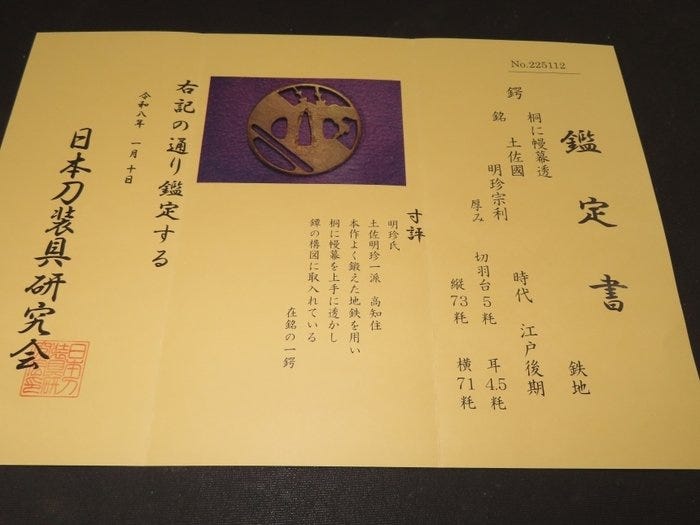 No.225112
鑑定書
鉄地
桐に幔幕透
鍔
銘 土佐國 明珍宗利
時代 江戸後期
厚み 切羽台5粍 耳4.5粍
縦73粍 横71粍
寸評
明珍氏
土佐明珍一派 高知住
本作よく鍛えた地鉄を用い
桐に幔幕を上手に透かし
鐔の構図に取入れている
在銘の一鍔
右記の通り鑑定する
令和八年 一月十日
日本刀装具研究会